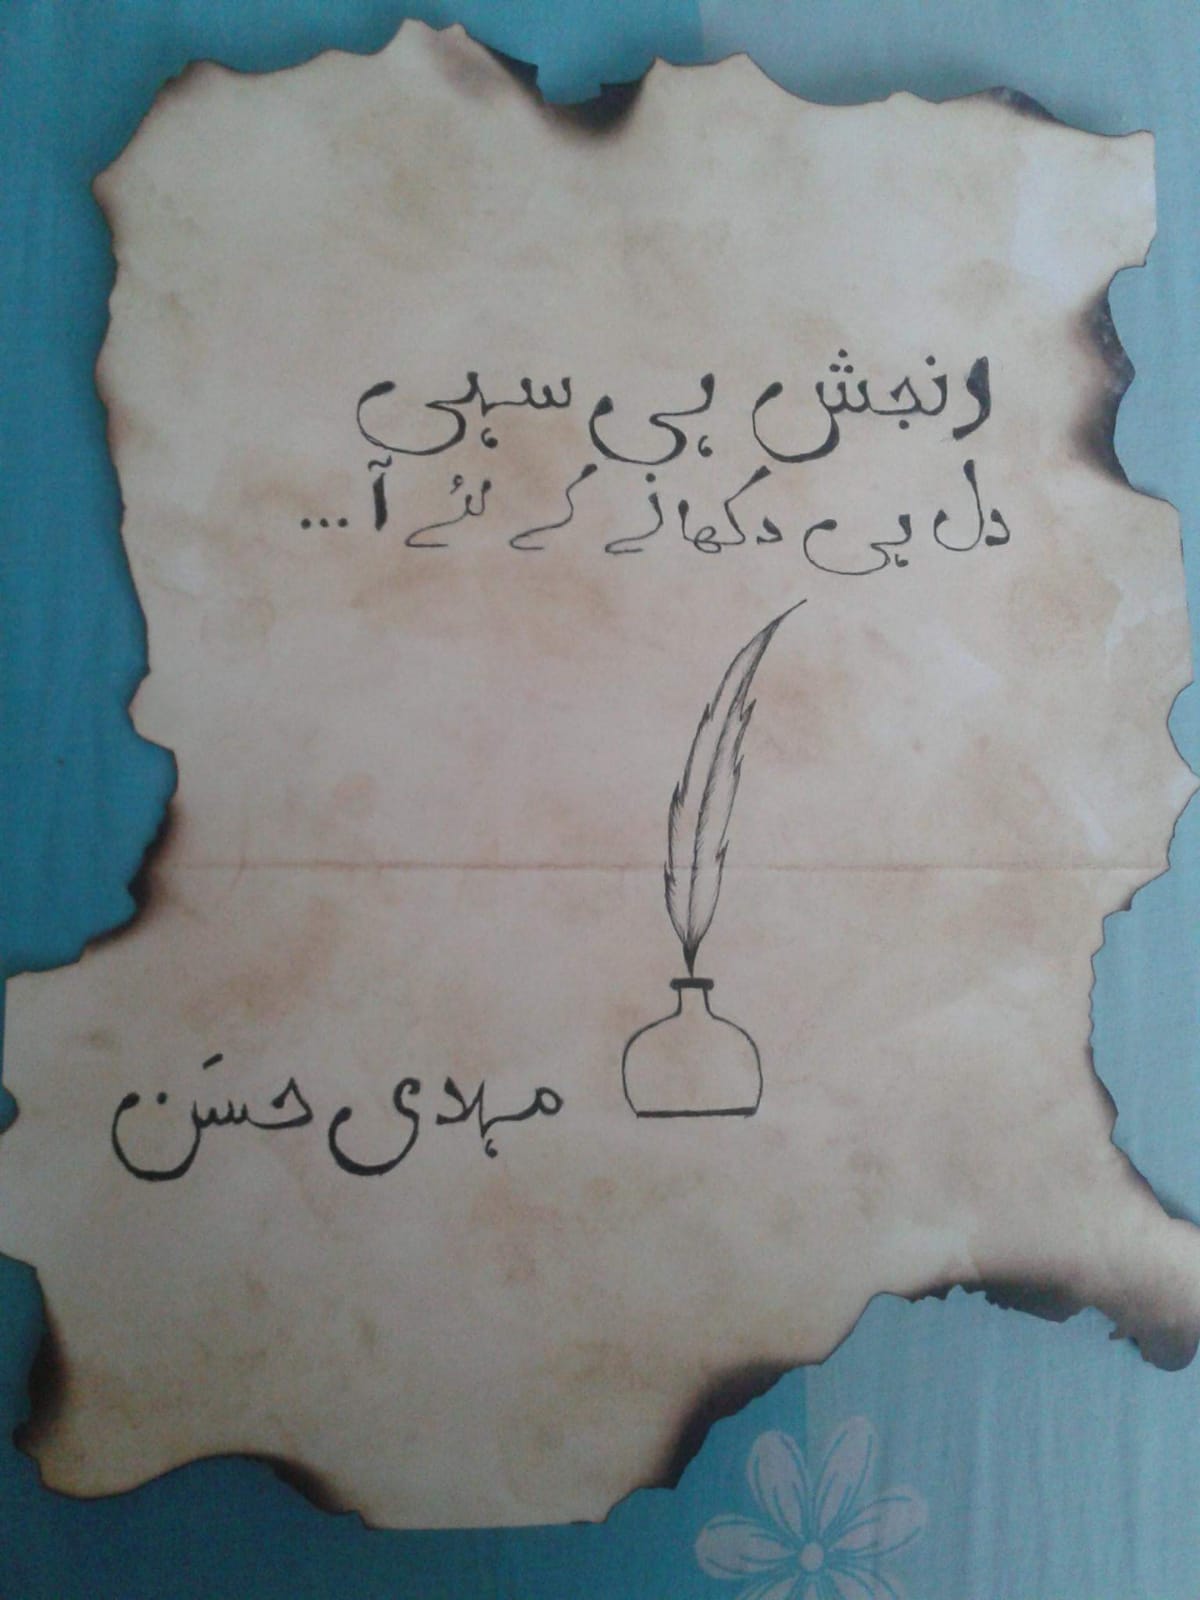 رنجش ہی سہی
دل ہی دکھانے کے لئے آ...
مہدی حسَن